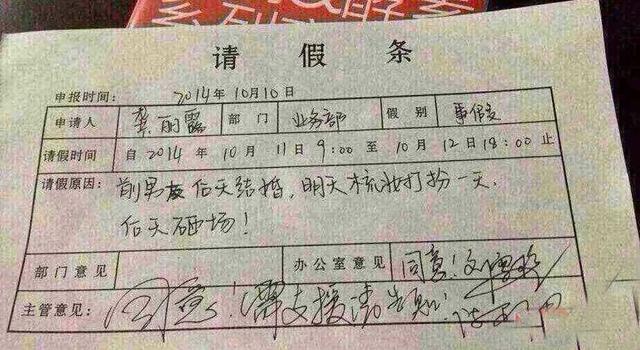 请假条
申报时间： 2014年10月10日
申请人 龚丽露 部门 业务部 假别 事假
请假时间 自2014年10月11日9:00至10月12日18:00止
请假原因： 前男友后天结婚，明天梳妆打扮一天，
后天砸场！
部门意见 办公室意见 同意！
主管意见： 同意！需支援请告知！